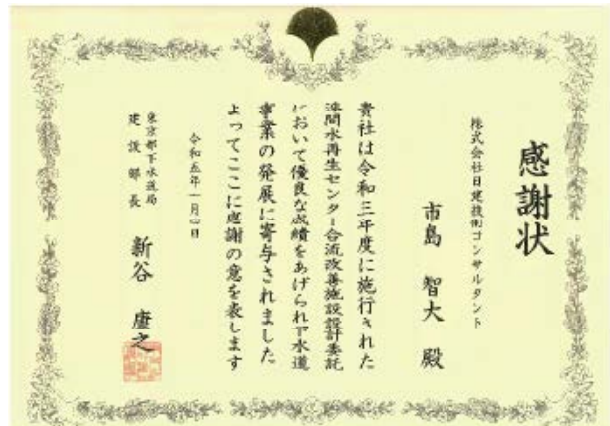 感謝状
株式会社日建技術コンサルタント
市島 智大 殿
貴社は令和三年度に施行された
間水再生センター合流改善施設設計委託
において優良な成績をあげられ下水道
事業の発展に寄与されました
よってここに感謝の意を表します
令和五年一月 日
東京都下水道局
建設部長 新谷 康之